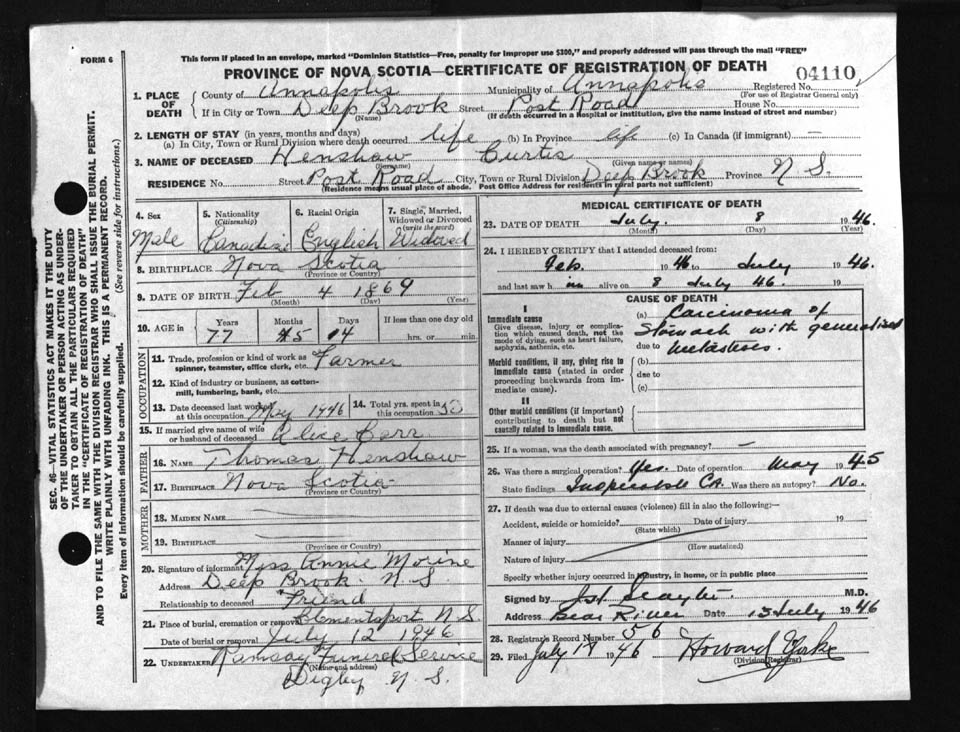 FORM 6
This form if placed in an envelope, marked "Dominion Statistics—Free, penalty for improper use $300," and properly addressed will pass through the mail "FREE"
PROVINCE OF NOVA SCOTIA—CERTIFICATE OF REGISTRATION OF DEATH
04110
1. PLACE OF DEATH
County of Annapolis Municipality of Annapolis Registered No.
(For use of Registrar General only)
If in City or Town Deep Brook Street Post Road House No.
(Name) (If death occurred in a Hospital or institution, give the name instead of street and number)
2. LENGTH OF STAY (in years, months and days)
(a) In City, Town or Rural Division where death occurred life (b) In Province life (c) In Canada (if immigrant) —
3. NAME OF DECEASED Henshaw Curtis
(Surname) (Given name or names)
RESIDENCE No. Street Post Road City, Town or Rural Division Deep Brook Province N S.
(Residence means usual place of abode. Post Office Address for residents in rural parts not sufficient)
4. Sex
Male
5. Nationality
(Citizenship)
Canadian
6. Racial Origin
English
7. Single, Married, Widowed or Divorced
(write the word)
Widowed
8. BIRTHPLACE Nova Scotia
(Province or Country)
9. DATE OF BIRTH Feb 4 1869
(Month) (Day) (Year)
10. AGE in Years Months Days If less than one day
77 5 04 hrs. or min.
OCCUPATION
11. Trade, profession or kind of work as spinner, teamster, office clerk, etc. Farmer
12. Kind of industry or business, as cotton-mill, lumbering, bank, etc.
13. Date deceased last worked at this occupation May 1946
14. Total yrs. spent in this occupation 50
15. If married give name of wife or husband of deceased Alice Carr
FATHER
16. NAME Thomas Henshaw
17. BIRTHPLACE Nova Scotia
(Province or Country)
MOTHER
18. MAIDEN NAME —
19. BIRTHPLACE —
(Province or Country)
20. Signature of informant Miss Annie Morine
Address Deep Brook. N. S.
Relationship to deceased Friend
21. Place of burial, cremation or removal Clementsport N. S.
Date of burial or removal July 12 1946
22. UNDERTAKER Ramsay Funeral Service
(Name and address)
Digby N. S.
MEDICAL CERTIFICATE OF DEATH
23. DATE OF DEATH July 8 1946.
(Month) (Day) (Year)
24. I HEREBY CERTIFY that I attended deceased from:
Feb. 1946 to July 1946.
and last saw him alive on 8 July 46. 19
CAUSE OF DEATH
I
Immediate cause
Give disease, injury or complication which caused death, not the mode of dying, such as heart failure, asphyxia, asthenia, etc.
(a) Carcinoma of
Stomach with generalized
due to metastases.
Morbid conditions, if any, giving rise to immediate cause (stated in order proceeding backwards from immediate cause).
(b)
due to
(c)
II
Other morbid conditions (if important) contributing to death but not causally related to immediate cause.
25. If a woman, was the death associated with pregnancy? —
26. Was there a surgical operation? Yes. Date of operation May 1945
State findings Inoperable CA. Was there an autopsy? No.
27. If death was due to external causes (violence) fill in also the following:—
Accident, suicide or homicide? Date of injury 19
(State which)
Manner of injury
(How sustained)
Nature of injury
Specify whether injury occurred in industry, in home, or in public place
Signed by M.D.
Address Bear River Date 13 July 1946
28. Registrar's Record Number 56
29. Filed July 18 1946 Howard Yorke
(Division Registrar)
SEC. 46—VITAL STATISTICS ACT MAKES IT THE DUTY
OF THE UNDERTAKER OR PERSON ACTING AS UNDER-
TAKER TO OBTAIN ALL THE PARTICULARS REQUIRED
IN THE "CERTIFICATE OF REGISTRATION OF DEATH"
AND TO FILE THE SAME WITH THE DIVISION REGISTRAR WHO SHALL ISSUE THE BURIAL PERMIT.
WRITE PLAINLY WITH UNFADING INK. THIS IS A PERMANENT RECORD.
Every item of information should be carefully supplied. (See reverse side for instructions.)